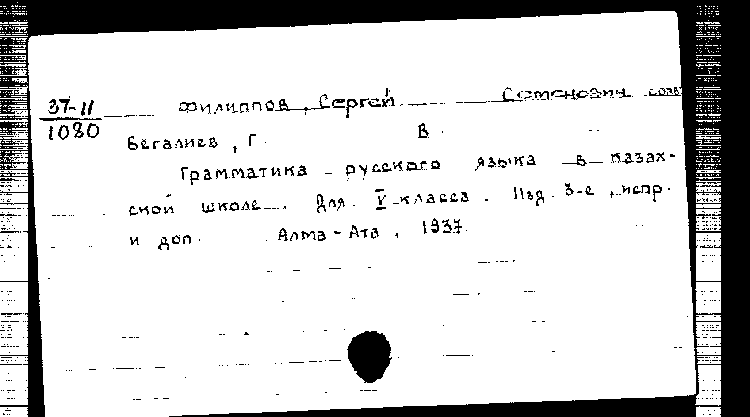 37-11
1080
Филиппов, Сергей Семенович
Бегалиев, Г. В
Грамматика русского языка в казах-
ской школе. Для V класса. Изд. 3-е, испр.
и доп. Алма-Ата, 1937.